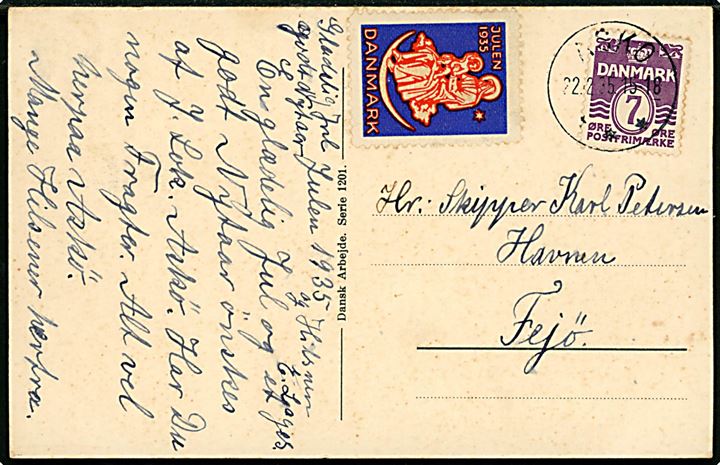 Glædelig Jul Julen 1935 og Hilsner
godt Nytaar
En glædelig Jul og et
godt Nytaar ønskes
af J. Lok. Askø. Har Du
nogen Fragter. Alt vel
herpaa Askø.
Mange Hilsener herfra.
Dansk Arbejde. Serie 1201.
JULEN
1935
DANMARK
ASKØ
22.12.35.15-18
DANMARK
7
ØRE ØRE
POSTFRIMÆRKE
Hr. Skipper Karl Petersen
Havnen
Fejø.